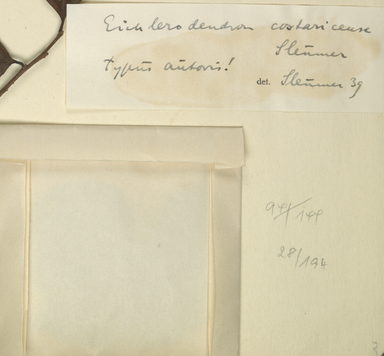 Eichlerodendron costaricense
Sleumer
Typus autoris!
det. Sleumer 39
94/144
28/194